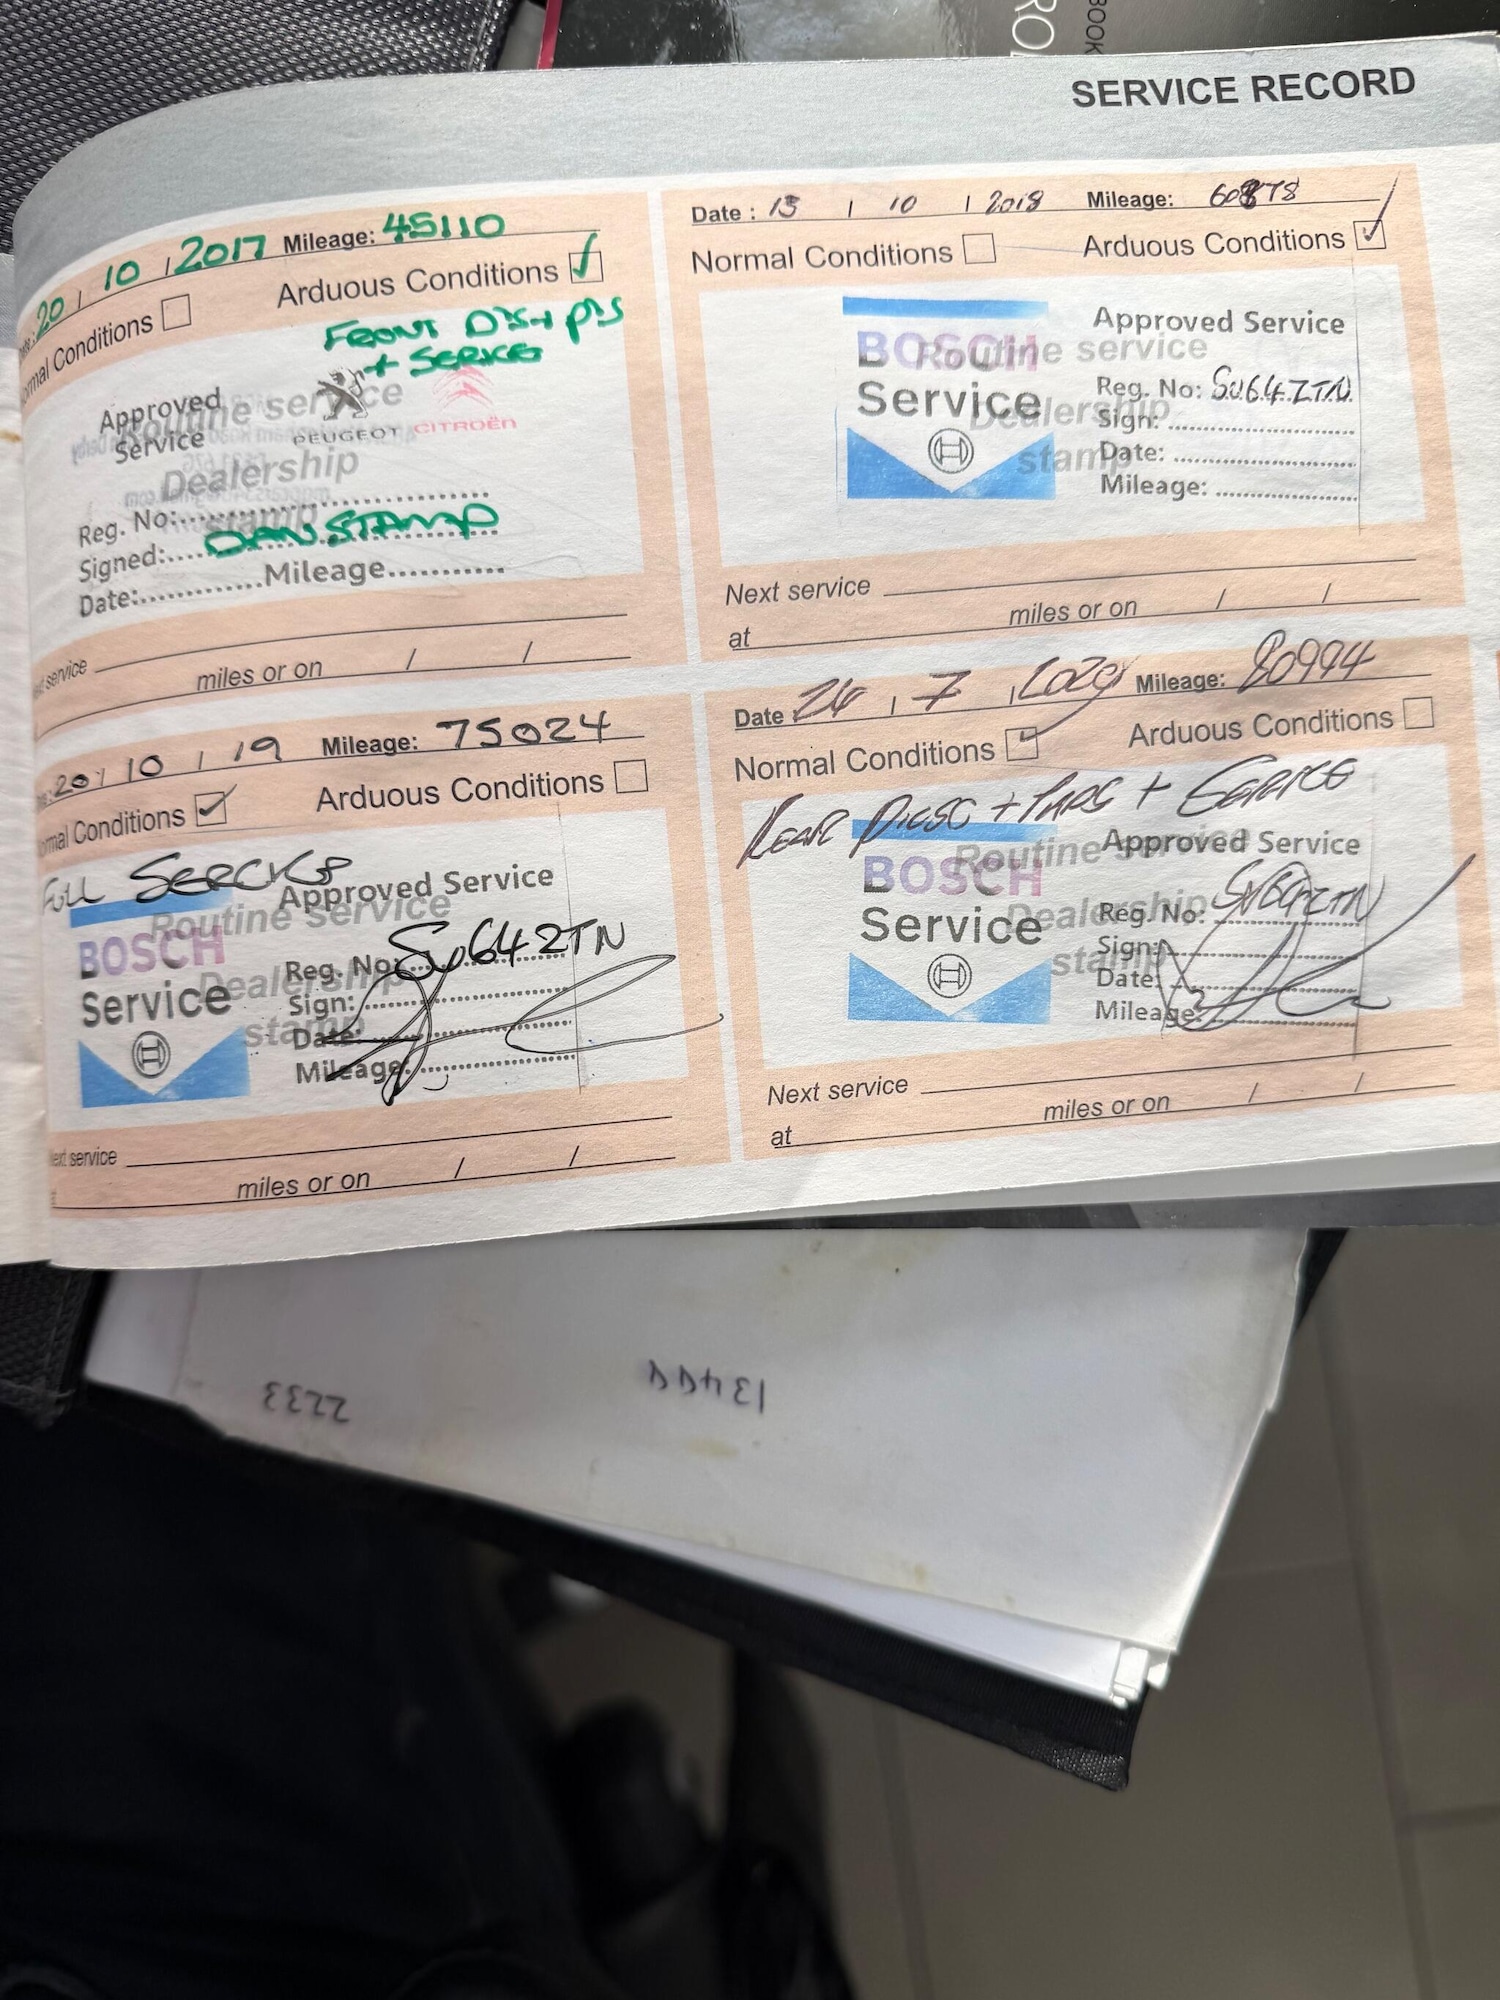 BOOK
SERVICE RECORD
20 / 10 / 2017 Mileage: 45110
Normal Conditions Arduous Conditions ✓
FRONT
+
Approved Service
Routine service
PEUGEOT CITROËN
Dealership
stamp
Reg. No:
Signed: DAN STAMP
Date: Mileage
service
miles or on / /
Date : 15 / 10 / 2018 Mileage: 60878
Normal Conditions Arduous Conditions ✓
BOSCH Service
Routine service
Dealership
stamp
Approved Service
Reg. No: SV64ZTN
Sign:
Date:
Mileage:
Next service
at miles or on / /
20 / 10 / 19 Mileage: 75024
Normal Conditions ✓ Arduous Conditions
FULL
BOSCH Service
Routine service
Dealership
stamp
Approved Service
Reg. No: SV64ZTN
Sign:
Date:
Mileage:
Next service
miles or on / /
Date 24 / 7 / 2020 Mileage: 80994
Normal Conditions ✓ Arduous Conditions
REAR + +
BOSCH Service
Routine service
Dealership
stamp
Approved Service
Reg. No: SV64ZTN
Sign:
Date:
Mileage:
Next service
at miles or on / /
2233